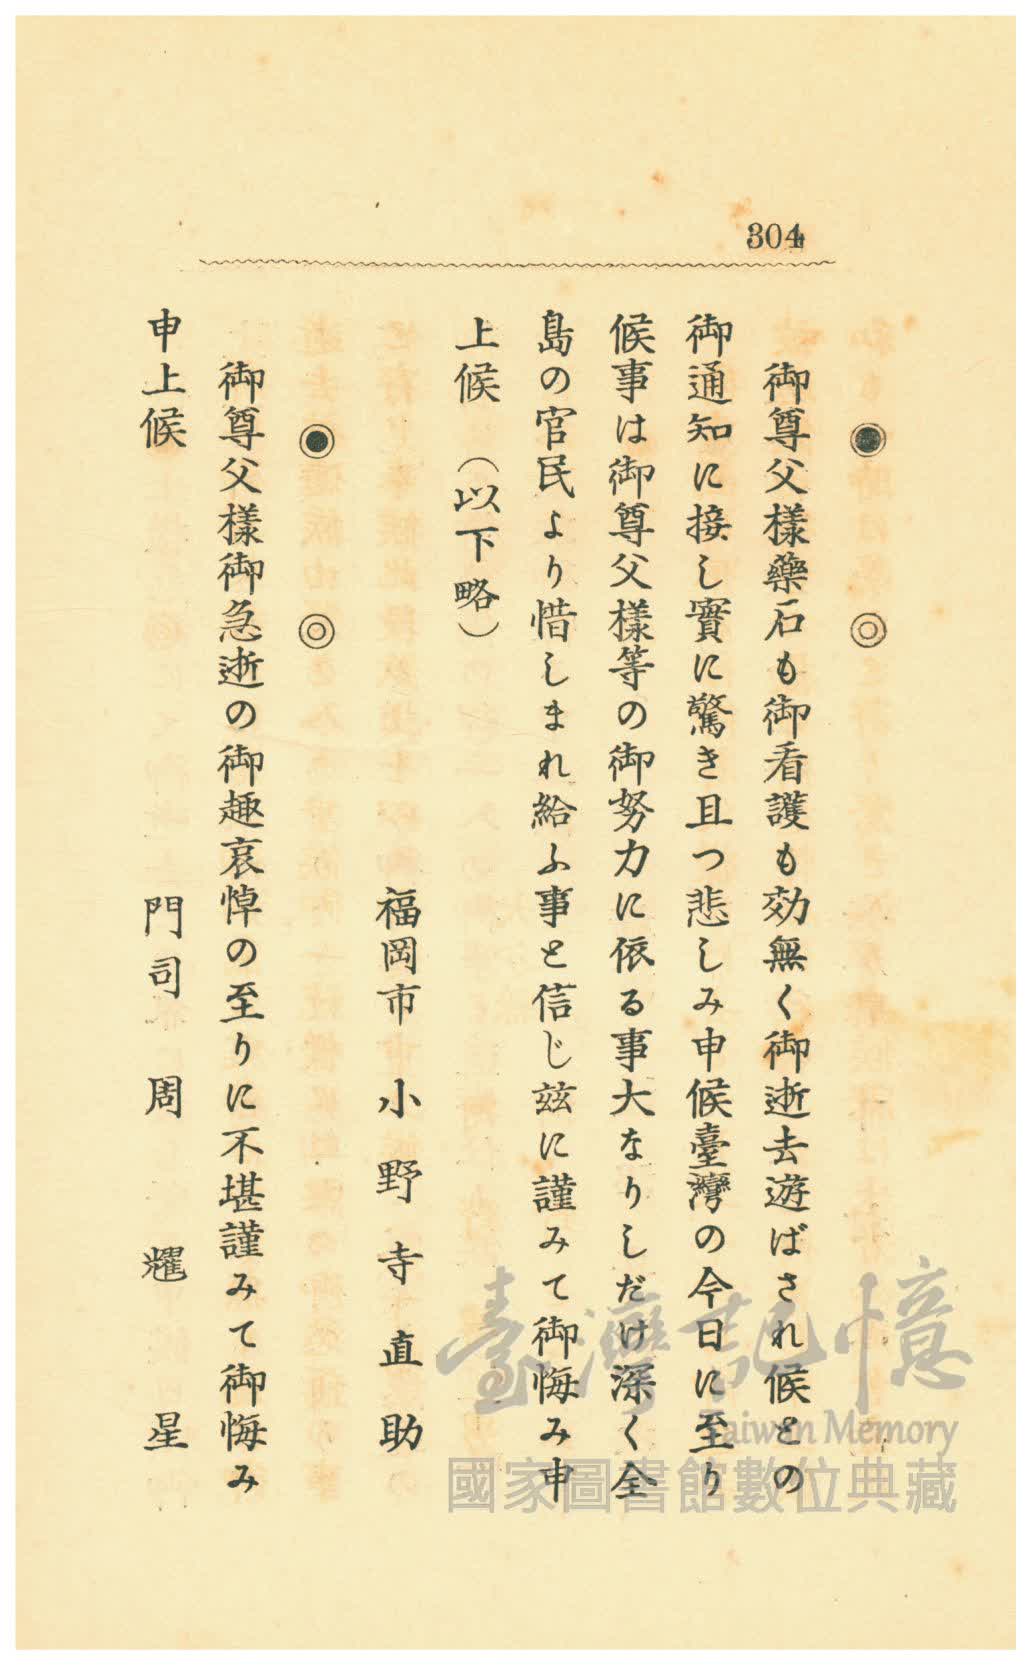 304
◉ ◎
御尊父樣藥石も御看護も効無く御逝去遊ばされ候との
御通知に接し實に驚き且つ悲しみ申候臺灣の今日に至り
候事は御尊父樣等の御努力に依る事大なりしだけ深く全
島の官民より惜しまれ給ふ事と信じ玆に謹みて御悔み申
上候（以下略）
福岡市 小野寺直助
◉ ◎
御尊父樣御急逝の御趣哀悼の至りに不堪謹みて御悔み
申上候
門司 周 耀 星
臺灣記憶
Taiwan Memory
國家圖書館數位典藏